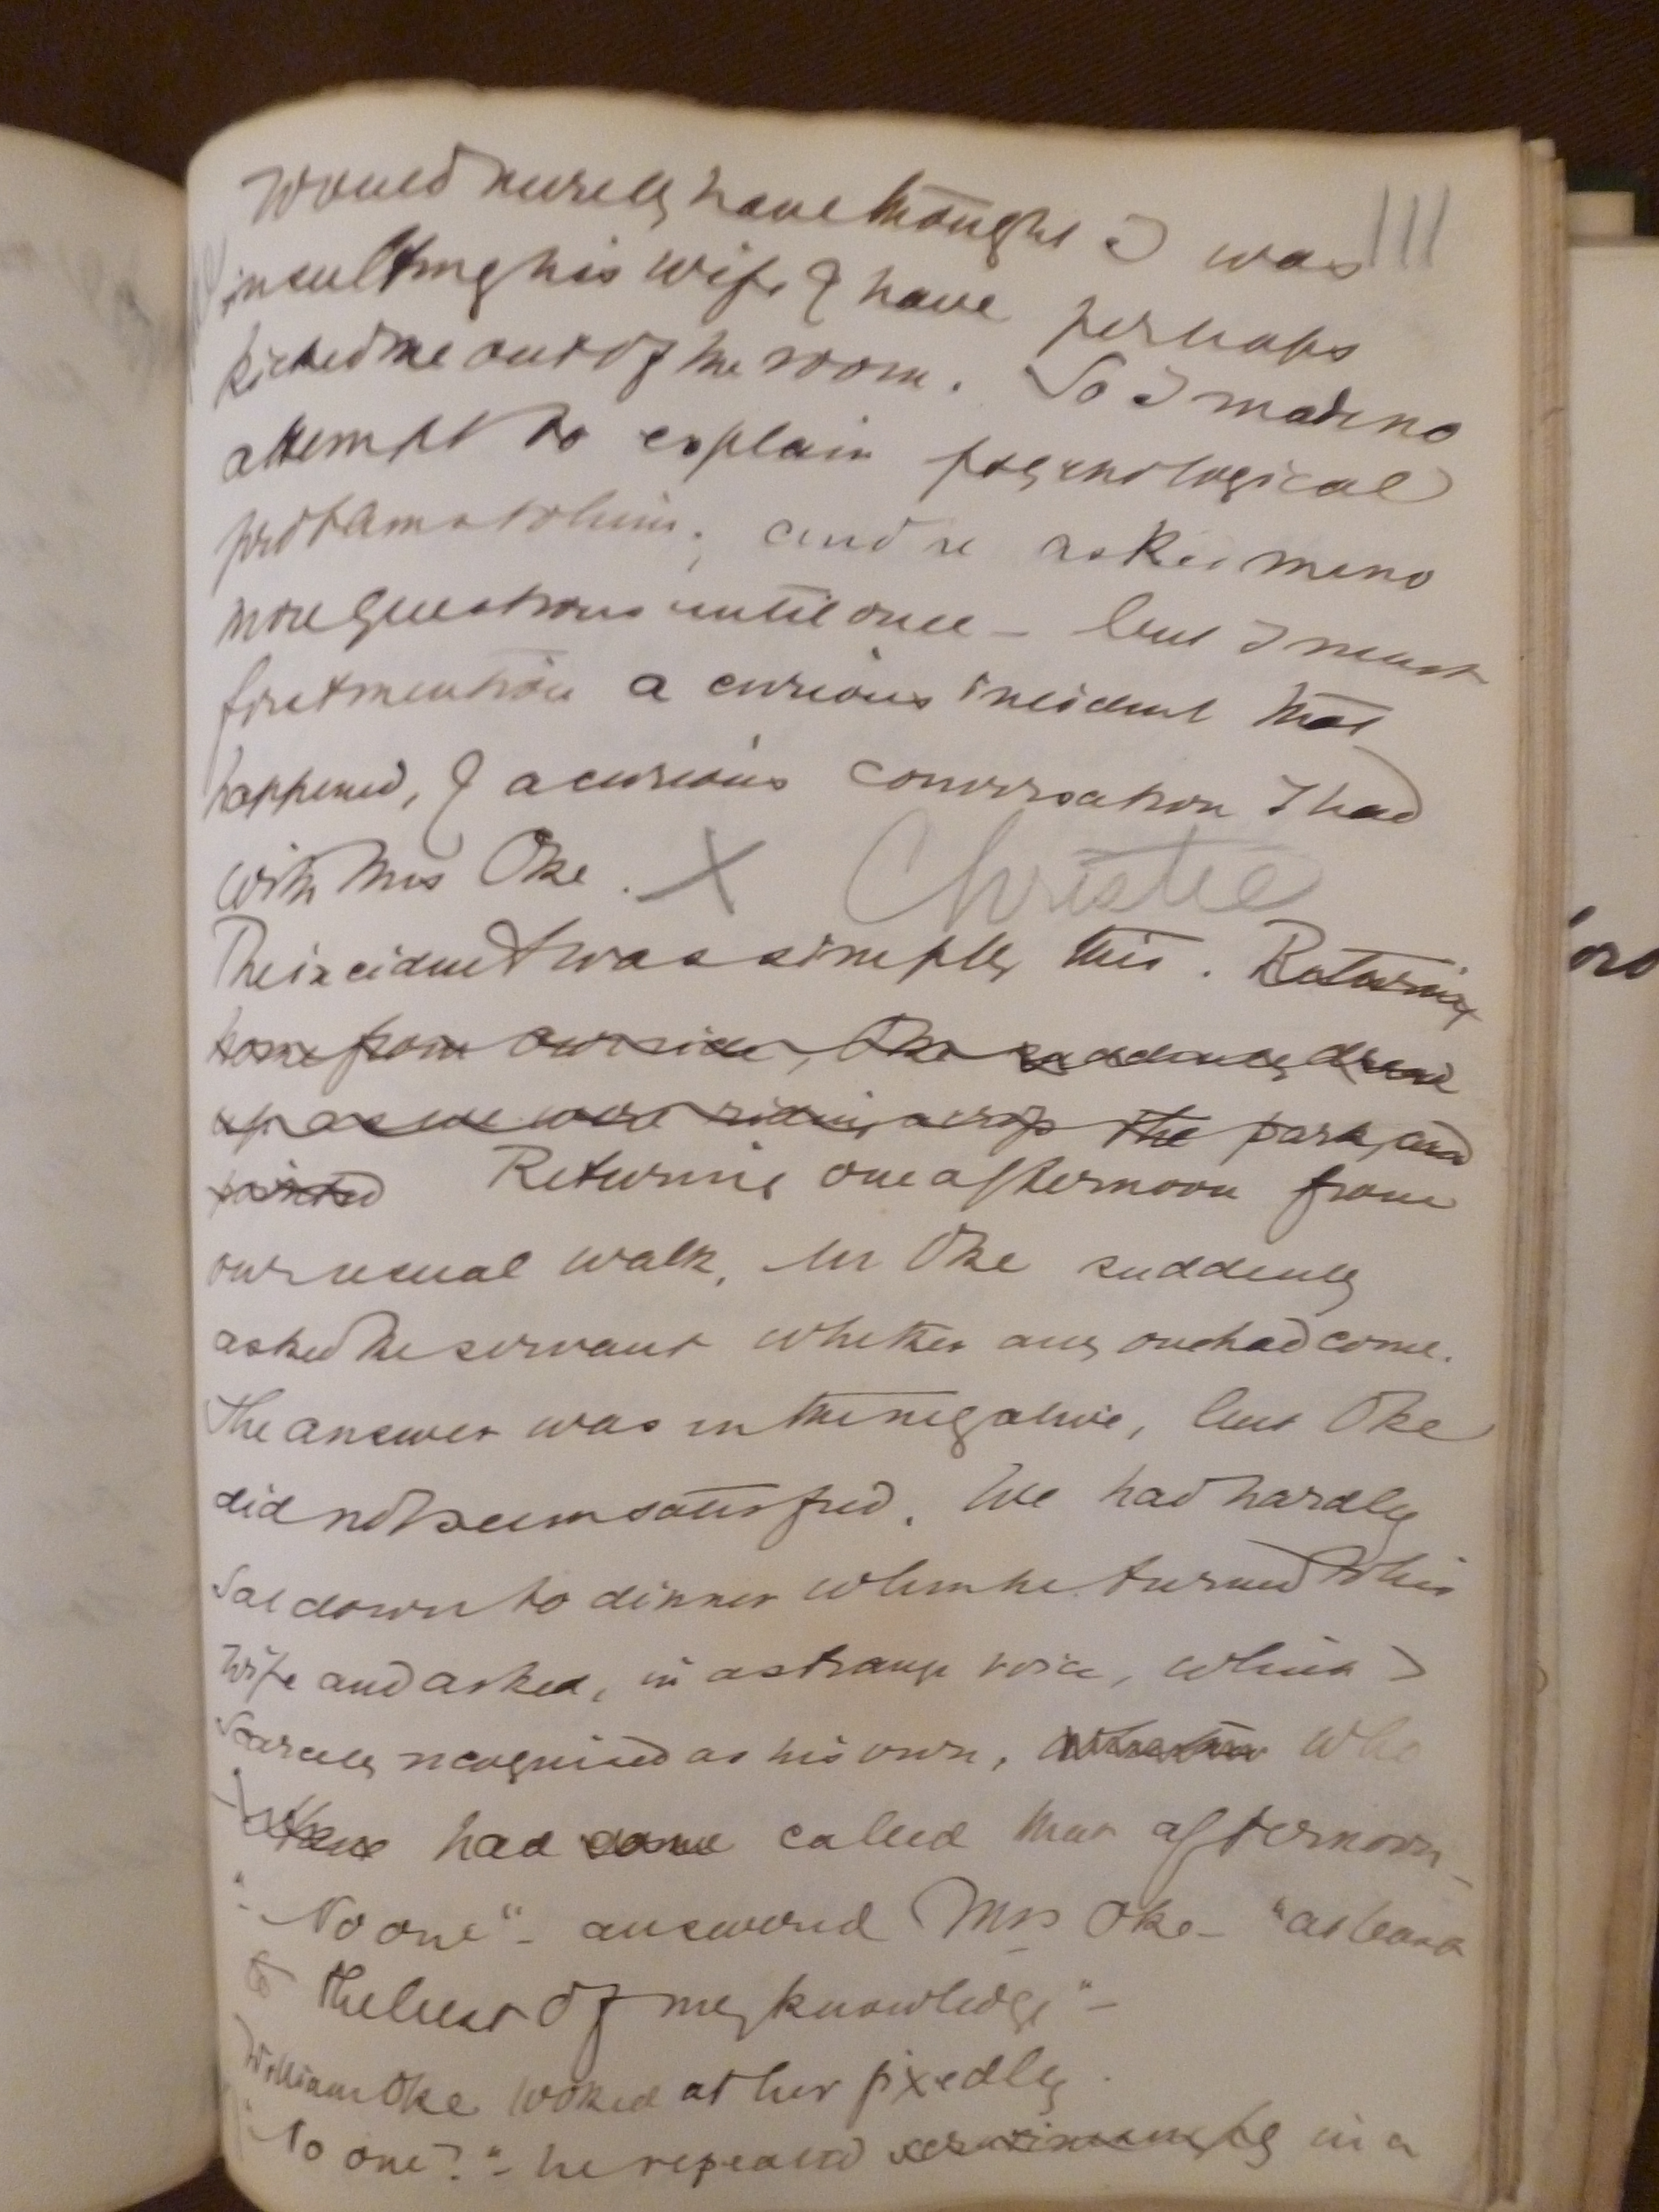 111
would merely have thought I was
insulting his wife & have perhaps
kicked me out of the room. So I made no
attempt to explain psychological
problems to him; and he asked me no
more questions until once – but I must
first mention a curious incident that
happened, & a curious conversation I had
with Mrs Oke. X Christie
The incident was simply this. Returning
home from our ride, Oke suddenly drew
up as we were riding across the park, and
pointed Returning one afternoon from
our usual walk, Mr Oke suddenly
asked the servant whether any one had come.
The answer was in the negative, but Oke
did not seem satisfied. We had hardly
sat down to dinner when he turned to his
wife and asked, in a strange voice, which I
scarcely recognised as his own, who
had come called that afternoon –
"No one" – answered Mrs Oke – "at least
to the best of my knowledge" –
William Oke looked at her fixedly.
"No one?" – he repeated scrutinisingly in a